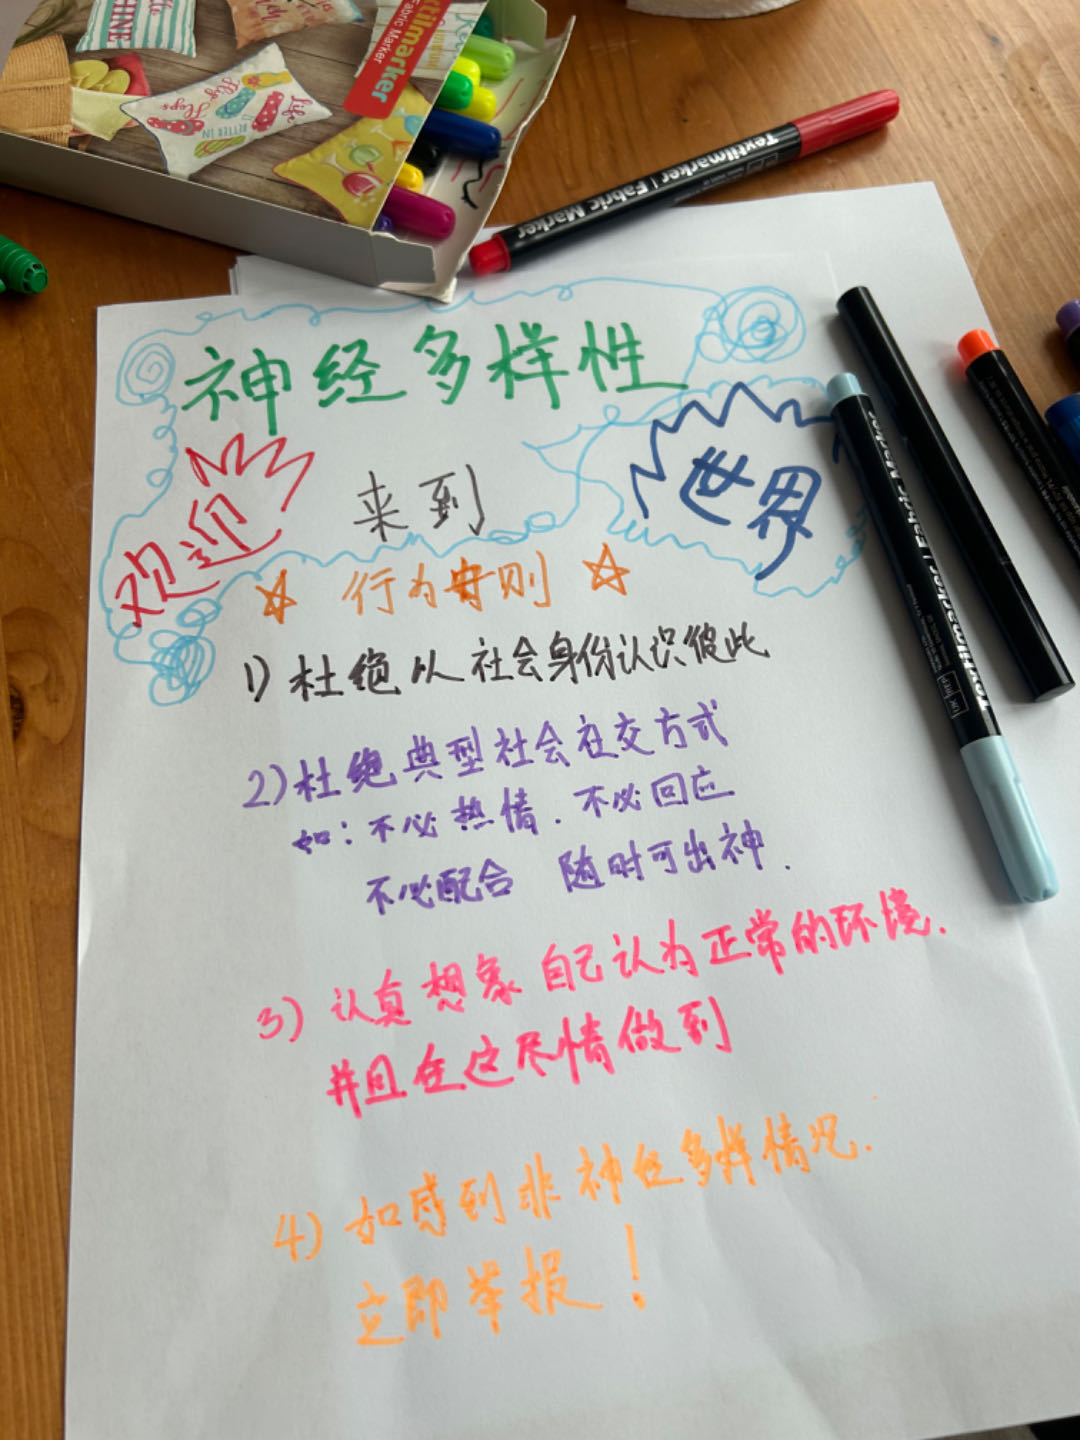 Textilmarker
Fabric Marker
Life
BETTER IN
Flip Flops
Textilmarker | Fabric Marker
神经多样性
欢迎
来到
世界
☆ 行为守则 ☆
1) 杜绝以社会身份认识彼此
2) 杜绝典型社会社交方式
如: 不必热情. 不必回应
不必配合 随时可出神.
3) 认真想象自己认为正常的环境.
并且在这尽情做到
4) 如感到非神经多样情况.
立即举报!
Textilmarker | Fabric Marker